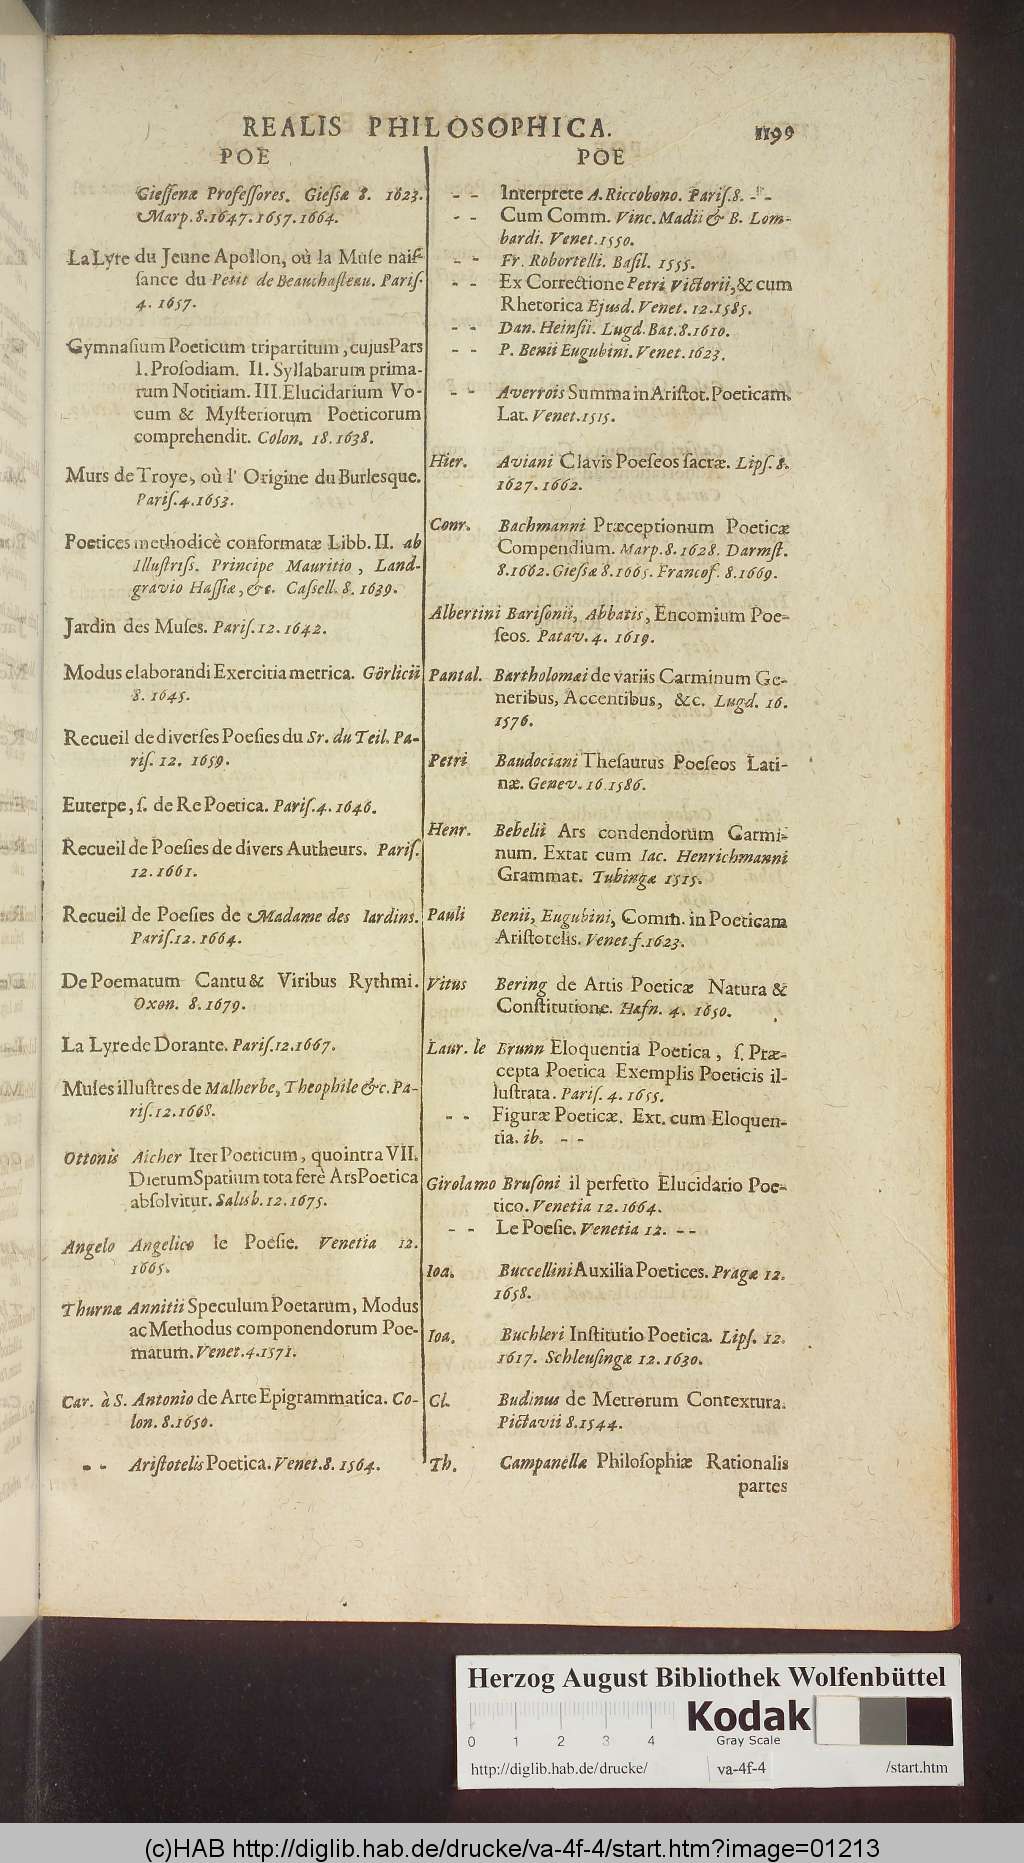 REALIS PHILOSOPHICA. 1199
POE
Giessenæ Professores. Giessæ 8. 1623.
Marp. 8. 1647. 1657. 1664.
La Lyre du Jeune Apollon, où la Muse naiſ-
ſance du Petit de Beauchaſteau. Pariſ.
4. 1657.
Gymnaſium Poeticum tripartitum, cujus Pars
I. Proſodiam. II. Syllabarum prima-
rum Notitiam. III. Elucidarium Vo-
cum & Myſteriorum Poeticorum
comprehendit. Colon. 18. 1638.
Murs de Troye, où l' Origine du Burlesque.
Pariſ. 4. 1653.
Poetices methodicè conformatæ Libb. II. ab
Illuſtriſſ. Principe Mauritio, Land-
gravio Haſſiæ, &c. Caſſell. 8. 1639.
Jardin des Muſes. Pariſ. 12. 1642.
Modus elaborandi Exercitia metrica. Görlicii
8. 1645.
Recueil de diverſes Poeſies du Sr. du Teil. Pa-
riſ. 12. 1659.
Euterpe, ſ. de Re Poetica. Pariſ. 4. 1646.
Recueil de Poeſies de divers Autheurs. Pariſ.
12. 1661.
Recueil de Poeſies de Madame des Iardins.
Pariſ. 12. 1664.
De Poematum Cantu & Viribus Rythmi.
Oxon. 8. 1679.
La Lyre de Dorante. Pariſ. 12. 1667.
Muſes illuſtres de Malherbe, Theophile &c. Pa-
riſ. 12. 1668.
Ottonis Aicher Iter Poeticum, quo intra VII.
Dierum Spatium tota ferè Ars Poetica
abſolvitur. Salisb. 12. 1675.
Angelo Angelico le Poeſie. Venetia 12.
1665.
Thurnæ Annitii Speculum Poetarum, Modus
ac Methodus componendorum Poe-
matum. Venet. 4. 1571.
Car. à S. Antonio de Arte Epigrammatica. Co-
lon. 8. 1650.
- - Ariſtotelis Poetica. Venet. 8. 1564.
POE
- - Interprete A. Riccobono. Pariſ. 8. - -
- - Cum Comm. Vinc. Madii & B. Lom-
bardi. Venet. 1550.
- - Fr. Robortelli. Baſil. 1555.
- - Ex Correctione Petri Victorii, & cum
Rhetorica Ejusd. Venet. 12. 1585.
- - Dan. Heinſii. Lugd. Bat. 8. 1610.
- - P. Benii Eugubini. Venet. 1623.
- - Averrois Summa in Ariſtot. Poeticam.
Lat. Venet. 1515.
Hier. Aviani Clavis Poeſeos ſacræ. Lipſ. 8.
1627. 1662.
Conr. Bachmanni Præceptionum Poeticæ
Compendium. Marp. 8. 1628. Darmſt.
8. 1662. Gieſſæ 8. 1665. Francof. 8. 1669.
Albertini Bariſonii, Abbatis, Encomium Poe-
ſeos. Patav. 4. 1619.
Pantal. Bartholomæi de variis Carminum Ge-
neribus, Accentibus, &c. Lugd. 16.
1576.
Petri Baudociani Theſaurus Poeſeos Lati-
næ. Genev. 16. 1586.
Henr. Bebelii Ars condendorum Carmi-
num. Extat cum Iac. Henrichmanni
Grammat. Tubingæ 1515.
Pauli Benii, Eugubini, Comm. in Poeticam
Ariſtotelis. Venet. f. 1623.
Vitus Bering de Artis Poeticæ Natura &
Conſtitutione. Hafn. 4. 1650.
Laur. le Brunn Eloquentia Poetica, ſ. Præ-
cepta Poetica Exemplis Poeticis il-
luſtrata. Pariſ. 4. 1655.
- - Figuræ Poeticæ. Ext. cum Eloquen-
tia. ib. - -
Girolamo Bruſoni il perfetto Elucidario Poe-
tico. Venetia 12. 1664.
- - Le Poeſie. Venetia 12. - -
Ioa. Buccellini Auxilia Poetices. Pragæ 12.
1658.
Ioa. Buchleri Inſtitutio Poetica. Lipſ. 12.
1617. Schleuſingæ 12. 1630.
Cl. Budinus de Metrorum Contextura.
Pictavii 8. 1544.
Th. Campanellæ Philoſophiæ Rationalis
partes
Herzog August Bibliothek Wolfenbüttel
0 1 2 3 4
Kodak
Gray Scale
http://diglib.hab.de/drucke/ va-4f-4 /start.htm
(c)HAB http://diglib.hab.de/drucke/va-4f-4/start.htm?image=01213